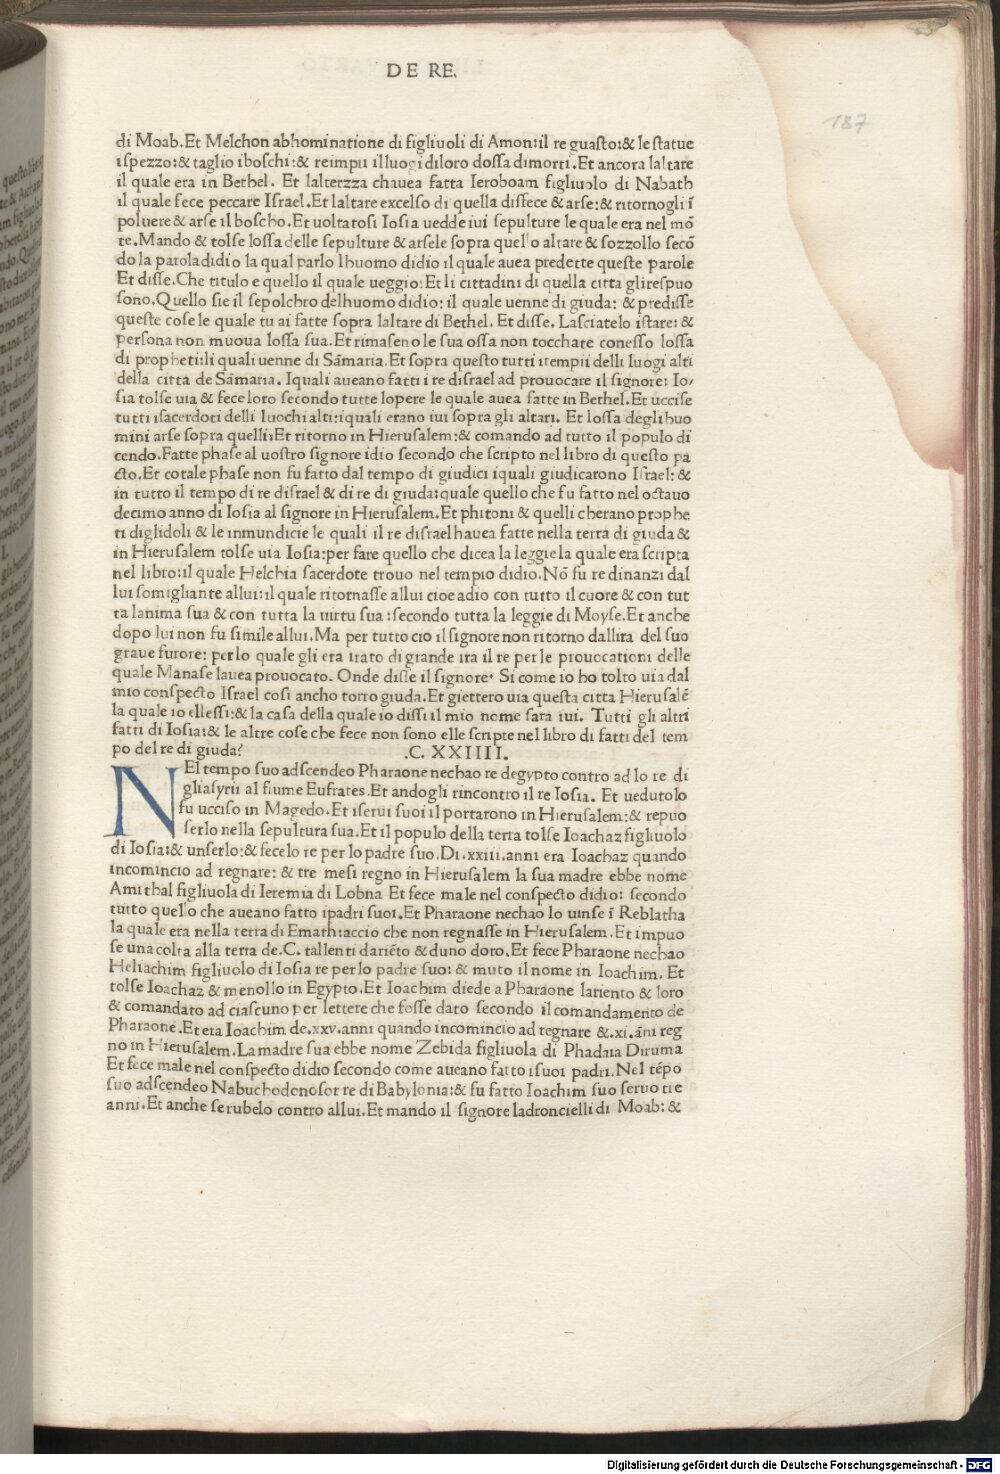 DE RE.
187
di Moab.Et Melchon abhominatione di figliuoli di Amon:il re guaſto:& le ſtatue
iſpezzo:& taglio iboſchi:& reimpii illuogi diloro doſſa dimorti.Et ancora laltare
il quale era in Bethel. Et lalterzza chauea fatta Ieroboam figliuolo di Nabath
il quale fece peccare Iſrael.Et laltare excelſo di quella diſfece & arſe:& ritornogli ī
poluere & arſe il boſcho.Et uoltatoſi Ioſia uedde iui ſepulture le quale era nel mō
te.Mando & tolſe loſſa delle ſepulture & arſele ſopra quello altare & ſozzollo ſecō
do la parola didio la qual parlo lhuomo didio il quale auea predette queſte parole
Et diſſe.Che titulo e quello il quale ueggio:Et li cittadini di quella citta glireſpuo
ſono.Quello ſie il ſepolchro delhuomo didio: il quale uenne di giuda: & prediſſe
queſte coſe le quale tu ai fatte ſopra laltare di Bethel. Et diſſe. Laſciatelo iſtare: &
perſona non muoua loſſa ſua.Et rimaſeno le ſua oſſa non tocchate coneſſo loſſa
di propheti:li quali uenne di Sāmaria.Et ſopra queſto tutti itempii delli luogi alti
della citta de Sāmaria. Iquali aueano fatti i re diſrael ad prouocare il ſignore: Io/
ſia tolſe uia & fece loro ſecondo tutte lopere le quale auea fatte in Bethel.Et ucciſe
tutti iſacerdoti delli luochi alti:iquali erano iui ſopra gli altari. Et loſſa deglihuo
mini arſe ſopra quelli:Et ritorno in Hieruſalem:& comando ad tutto il populo di
cendo.Fatte phaſe al uoſtro ſignore idio ſecondo che ſcripto nel libro di queſto pa
cto.Et cotale phaſe non fu fatto dal tempo di giudici iquali giudicarono Iſrael: &
in tutto il tempo di re diſrael & di re di giuda:quale quello che fu fatto nel octauo
decimo anno di Ioſia al ſignore in Hieruſalem.Et phitoni & quelli cherano prophe
ti diglidoli & le inmundicie le quali il re diſrael hauea fatte nella terra di giuda &
in Hieruſalem tolſe uia Ioſia:per fare quello che dicea la leggie la quale era ſcripta
nel libro:il quale Helchia ſacerdote trouo nel tempio didio.Nō fu re dinanzi dal
lui ſomigliante allui:il quale ritornaſſe allui cioe adio con tutto il cuore & con tut
ta lanima ſua & con tutta la uirtu ſua :ſecondo tutta la leggie di Moyſe.Et anche
dopo lui non fu ſimile allui.Ma per tutto cio il ſignore non ritorno dallira del ſuo
graue furore: per lo quale gli era irato di grande ira il re per le prouocationi delle
quale Manaſe lauea prouocato. Onde diſſe il ſignore. Si come io ho tolto uia dal
mio conſpecto Iſrael coſi ancho torro giuda.Et giettero uia queſta citta Hieruſalē
la quale io elleſſi:& la caſa della quale io diſſi il mio nome ſara iui. Tutti gli altri
fatti di Ioſia:& le altre coſe che fece non ſono elle ſcripte nel libro di fatti del tem
po del re di giuda? .C. XXIIII.
NEl tempo ſuo adſcendeo Pharaone nechao re degypto contro ad lo re di
gliaſyrii al fiume Eufrates.Et andogli rincontro il re Ioſia. Et uedutolo
fu ucciſo in Magedo.Et iſerui ſuoi il portarono in Hieruſalem:& repuo
ſerlo nella ſepultura ſua.Et il populo della terra tolſe Ioachaz figliuolo
di Ioſia:& unſerlo:& fecelo re per lo padre ſuo.Di.xxiii.anni era Ioachaz quando
incomincio ad regnare: & tre meſi regno in Hieruſalem la ſua madre ebbe nome
Amithal figliuola di Ieremia di Lobna Et fece male nel conſpecto didio: ſecondo
tutto quello che aueano fatto ipadri ſuoi.Et Pharaone nechao lo uinſe ī Reblatha
la quale era nella terra di Emath:accio che non regnaſſe in Hieruſalem.Et impuo
ſe una colta alla terra de.C. tallenti dariēto & duno doro.Et fece Pharaone nechao
Heliachim figliuolo di Ioſia re per lo padre ſuo: & muto il nome in Ioachim. Et
tolſe Ioachaz & menollo in Egypto.Et Ioachim diede a Pharaone lariento & loro
& comandato ad ciaſcuno per lettere che foſſe dato ſecondo il comandamento de
Pharaone.Et era Ioachim de.xxv.anni quando incomincio ad regnare &.xi.āni reg
no in Hieruſalem.La madre ſua ebbe nome Zebida figliuola di Phadaia Diruma
Et fece male nel conſpecto didio ſecondo come aueano fatto iſuoi padri.Nel tēpo
ſuo adſcendeo Nabuchodonoſor re di Babylonia:& fu fatto Ioachim ſuo ſeruo tre
anni.Et anche ſerubelo contro allui.Et mando il ſignore ladroncielli di Moab: &
Digitalisierung gefördert durch die Deutsche Forschungsgemeinschaft - DFG